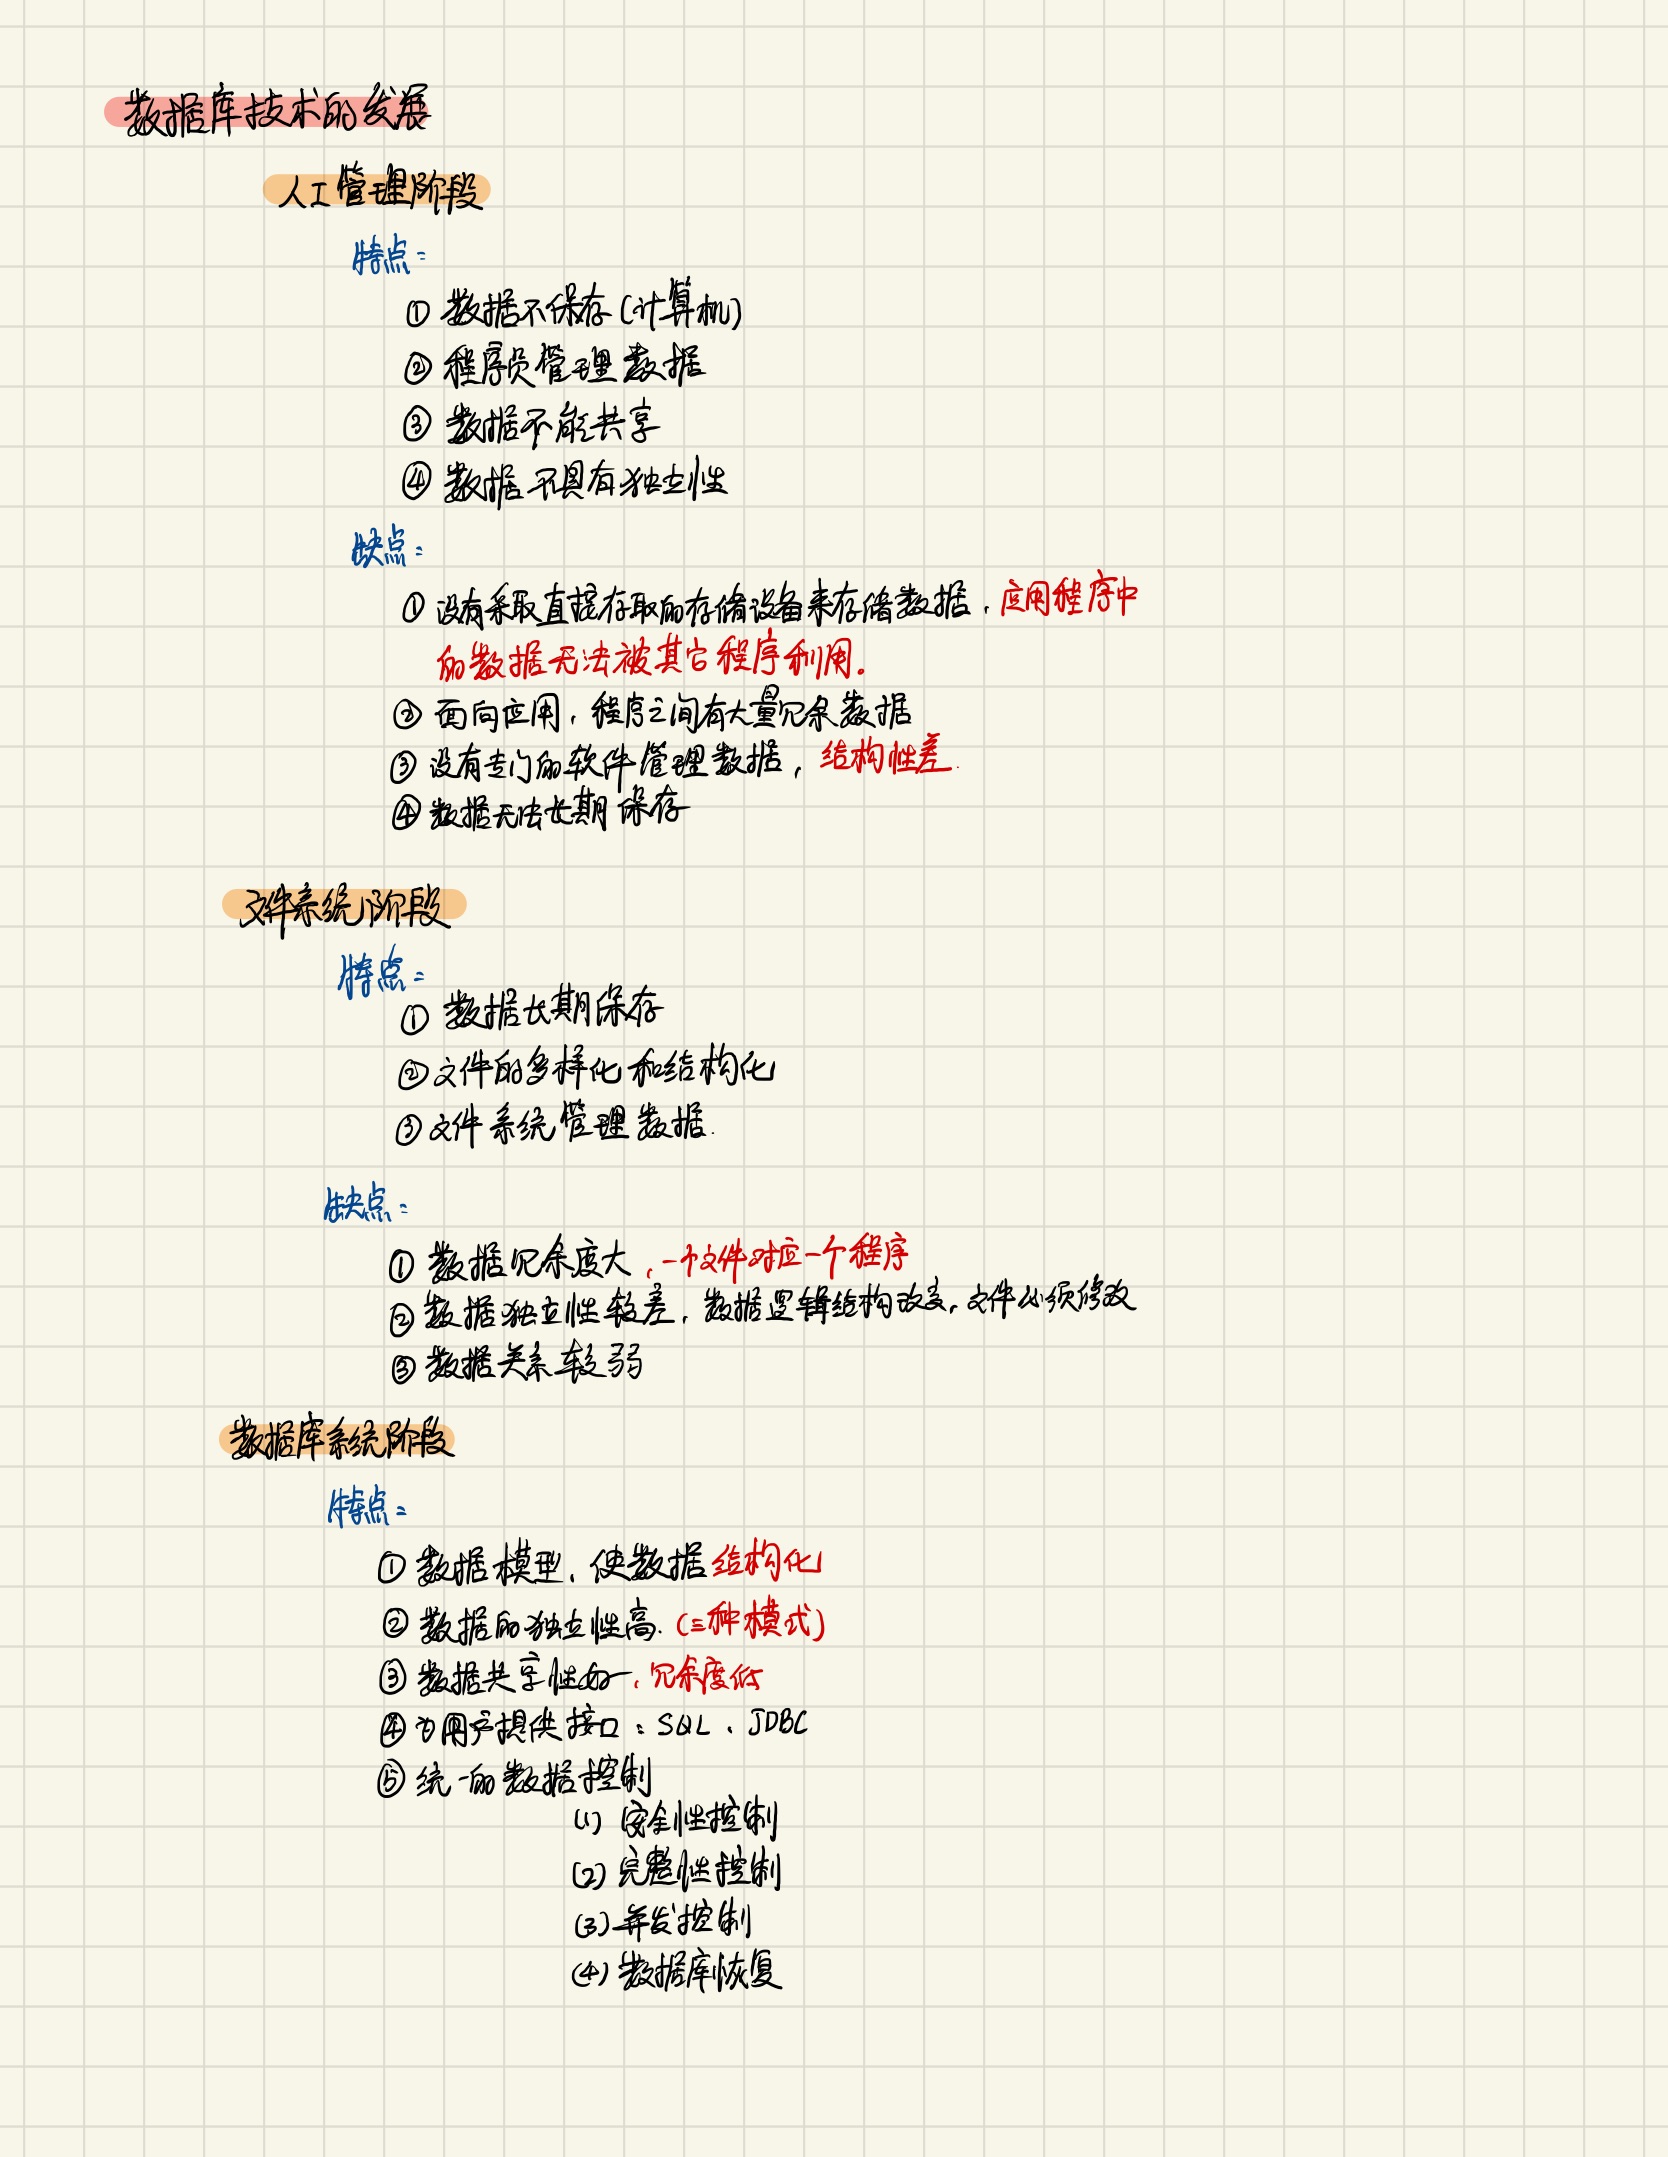 数据库技术的发展
人工管理阶段
特点:
① 数据不保存(计算机)
② 程序员管理数据
③ 数据不能共享
④ 数据不具有独立性
缺点:
① 没有采取直接存取的存储设备来存储数据,应用程序中
的数据无法被其它程序利用.
② 面向应用,程序之间有大量冗余数据
③ 没有专门的软件管理数据,结构性差.
④ 数据无法长期保存
文件系统阶段
特点:
① 数据长期保存
② 文件的多样化和结构化
③ 文件系统管理数据.
缺点:
① 数据冗余度大,一个文件对应一个程序
② 数据独立性较差,数据逻辑结构改变,文件必须修改
③ 数据关系较弱
数据库系统阶段
特点:
① 数据模型、使数据结构化
② 数据的独立性高.(三种模式)
③ 数据共享性好,冗余度低
④ 为用户提供接口:SQL、JDBC
⑤ 统一的数据控制
(1) 安全性控制
(2) 完整性控制
(3) 并发控制
(4) 数据库恢复